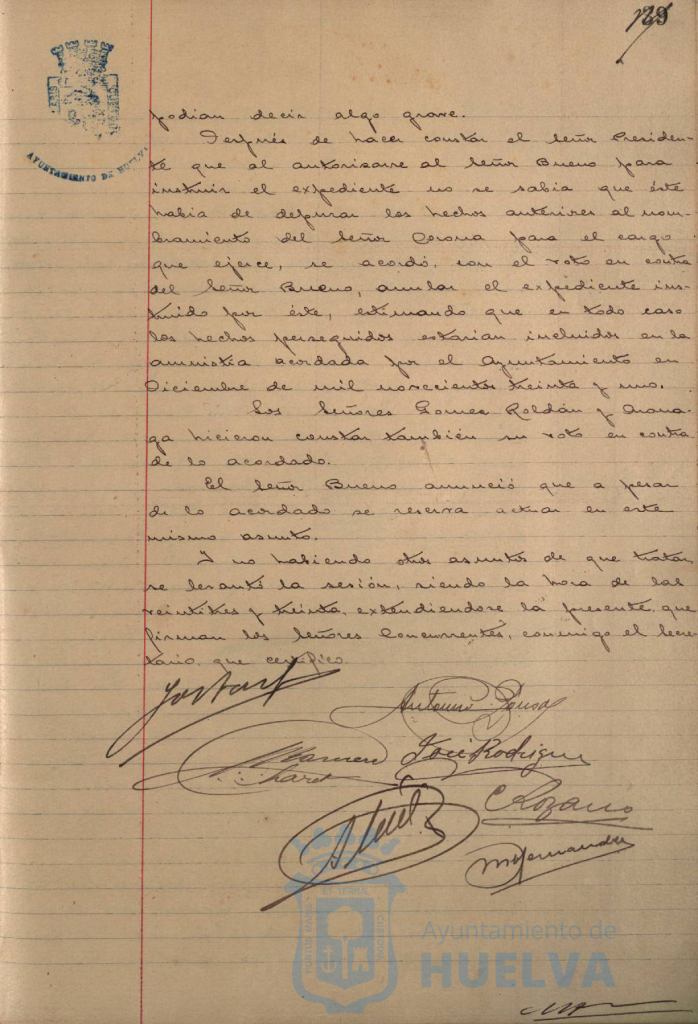 39
AYUNTAMIENTO DE HUELVA
podian decir algo grave.
Después de hacer constar el Señor Presiden-
te que al autorizarse al Señor Bueno para
instruir el expediente no se sabia que éste
habia de depurar los hechos anteriores al nom-
bramiento del Señor Corona para el cargo
que ejerce, se acordó, con el voto en contra
del Señor Bueno, anular el expediente ins-
truido por éste, estimando que en todo caso
los hechos perseguidos estarian incluidos en la
amnistia acordada por el Ayuntamiento en
Diciembre de mil novecientos treinta y uno.
Los Señores Gomez Roldán y
hicieron constar también su voto en contra
de lo acordado.
El Señor Bueno anunció que a pesar
de lo acordado se reserva actuar en este
mismo asunto.
Y no habiendo otros asuntos de que tratar
se levantó la sesión, siendo la hora de las
veintitres y treinta, extendiendose la presente que
firman los Señores Concurrentes, conmigo el Secre-
tario, que certifico.
Antonio
José Rodriguez
C Lozano
M Hernandez
PORTUS MARIS ET TERRAE CUSTODIA
Ayuntamiento de
HUELVA